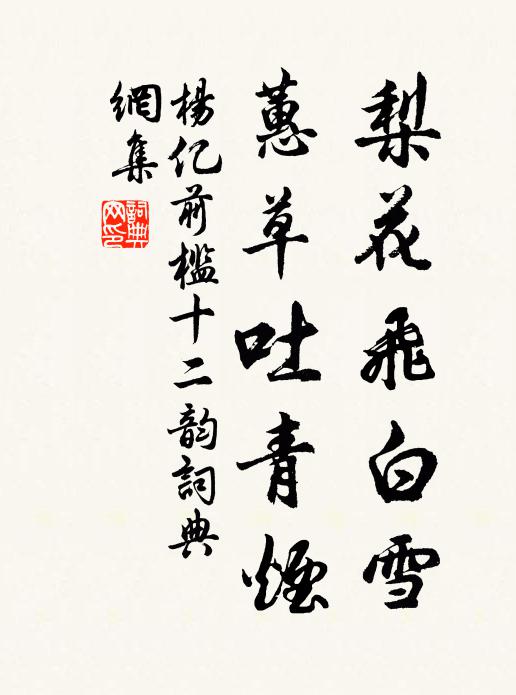 梨花飛白雪
蕙草吐青煙
楊亿前檻十二韵詞典
網集
詞典網印